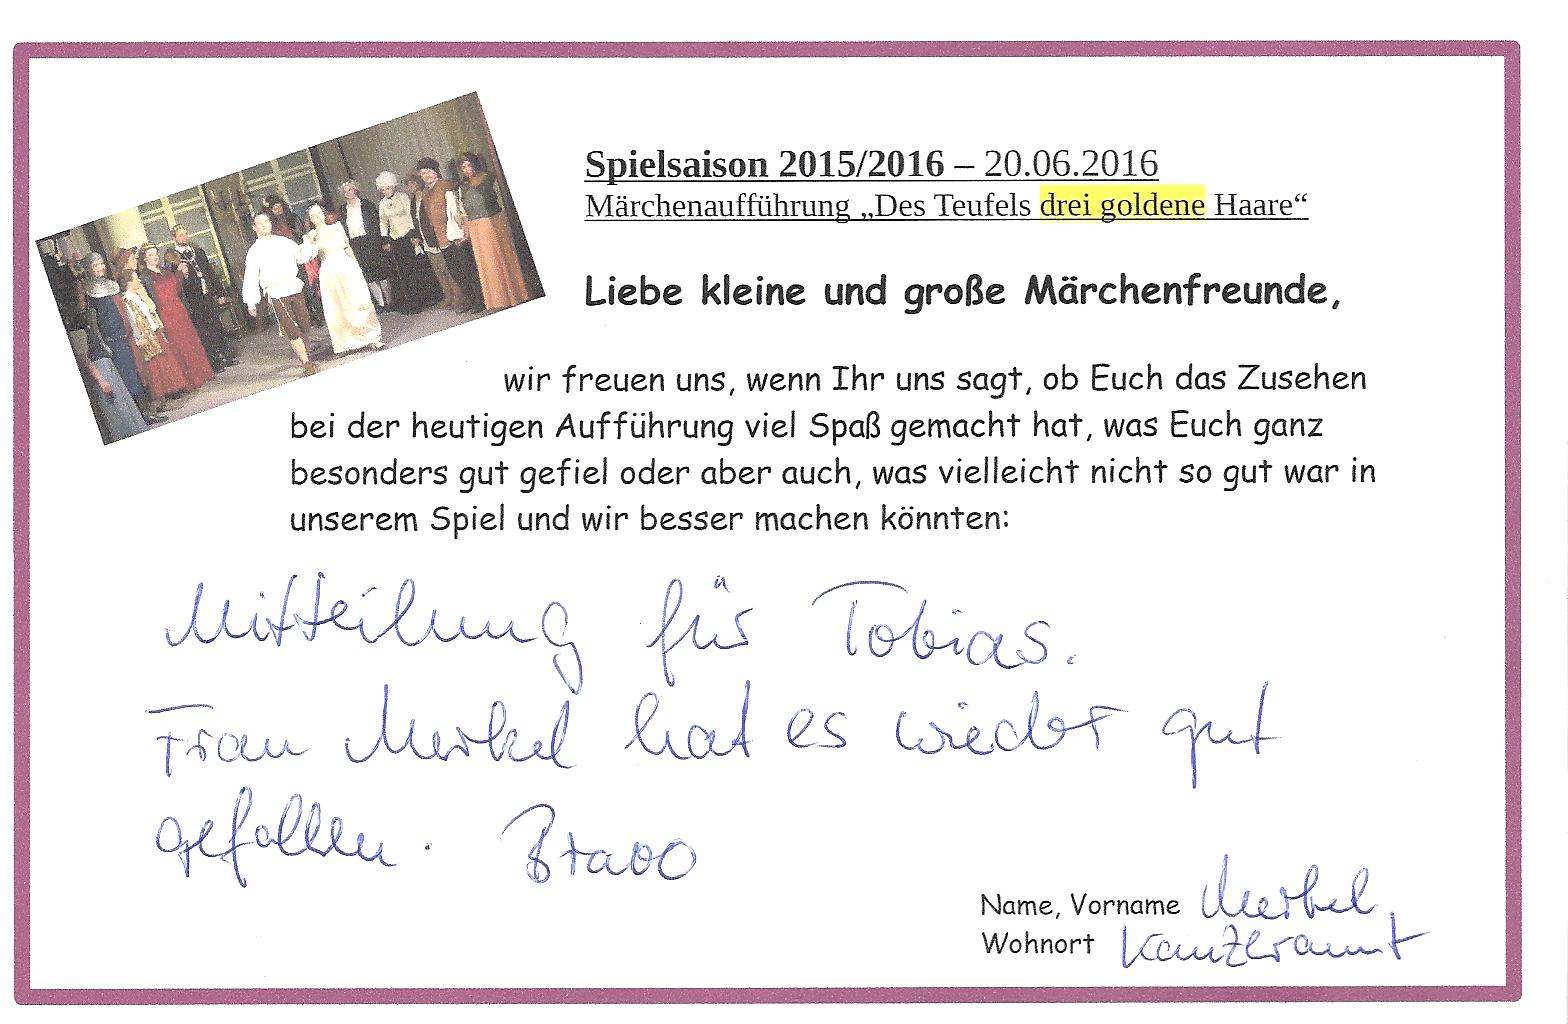 Spielsaison 2015/2016 – 20.06.2016
Märchenaufführung „Des Teufels drei goldene Haare“
Liebe kleine und große Märchenfreunde,
wir freuen uns, wenn Ihr uns sagt, ob Euch das Zusehen
bei der heutigen Aufführung viel Spaß gemacht hat, was Euch ganz
besonders gut gefiel oder aber auch, was vielleicht nicht so gut war in
unserem Spiel und wir besser machen könnten:
Mitteilung für Tobias.
Frau Merkel hat es wieder gut
gefallen. Bravo
Name, Vorname Merkel,
Wohnort Kanzleramt